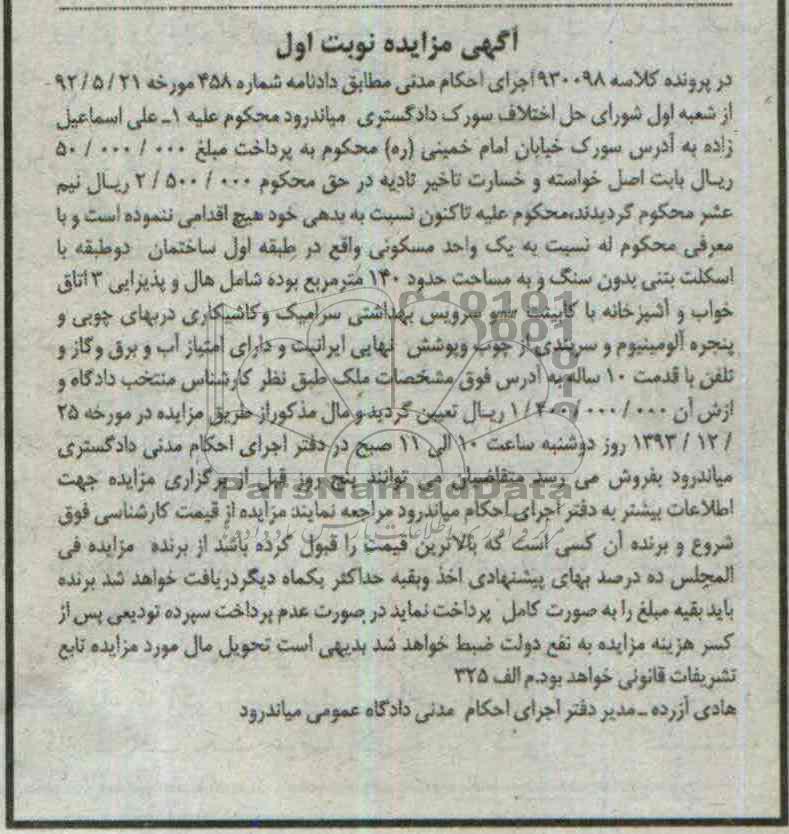 آگهی مزایده نوبت اول
در پرونده کلاسه ۹۳۰۰۹۸ اجرای احکام مدنی مطابق دادنامه شماره ۴۵۸ مورخه ۲۱ / ۵ / ۹۲
از شعبه اول شورای حل اختلاف سورک دادگستری میاندرود محکوم علیه ۱ـ علی اسماعیل
زاده به آدرس سورک خیابان امام خمینی (ره) محکوم به پرداخت مبلغ ۰۰۰ / ۰۰۰ / ۵۰
ریـال بابت اصل خواسته و خسارت تاخیر تادیه در حق محکوم ۰۰۰ / ۵۰۰ / ۲ ریـال نیم
عشر محکوم گردیدند،محکوم علیه تاکنون نسبت به بدهی خود هیچ اقدامی ننموده است و با
معرفی محکوم له نسبت به یک واحد مسکونی واقع در طبقه اول ساختمان دوطبقه با
اسکلت بتنی بدون سنگ و به مساحت حدود ۱۴۰ مترمربع بوده شامل هال و پذیرایی ۳ اتاق
خواب و آشپزخانه با کابینت و سرویس بهداشتی سرامیک وکاشیکاری دربهای چوبی و
پنجره آلومینیوم و سربندی از چوب وپوشش نهایی ایرانیت و دارای امتیاز آب و برق وگاز و
تلفن با قدمت ۱۰ ساله به آدرس فوق مشخصات ملک طبق نظر کارشناس منتخب دادگاه و
ازش آن ۰۰۰ / ۰۰۰ / ۴۰۰ / ۱ ریـال تعیین گردید و مال مذکوراز طریق مزایده در مورخه ۲۵
/ ۱۲ / ۱۳۹۳ روز دوشنبه ساعت ۱۰ الی ۱۱ صبح در دفتر اجرای احکام مدنی دادگستری
میاندرود بفروش می رسد متقاضیان می توانند پنج روز قبل از برگزاری مزایده جهت
ParsNamadData
اطلاعات بیشتر به دفتر اجرای احکام میاندرود مراجعه نمایند مزایده از قیمت کارشناسی فوق
شروع و برنده آن کسی است که بالاترین قیمت را قبول کرده باشد از برنده مزایده فی
المجلس ده درصد بهای پیشنهادی اخذ وبقیه حداکثر یکماه دیگردریافت خواهد شد برنده
باید بقیه مبلغ را به صورت کامل پرداخت نماید در صورت عدم پرداخت سپرده تودیعی پس از
کسر هزینه مزایده به نفع دولت ضبط خواهد شد بدیهی است تحویل مال مورد مزایده تابع
تشریفات قانونی خواهد بود.م الف ۳۲۵
هادی آزرده ـ مدیر دفتر اجرای احکام مدنی دادگاه عمومی میاندرود